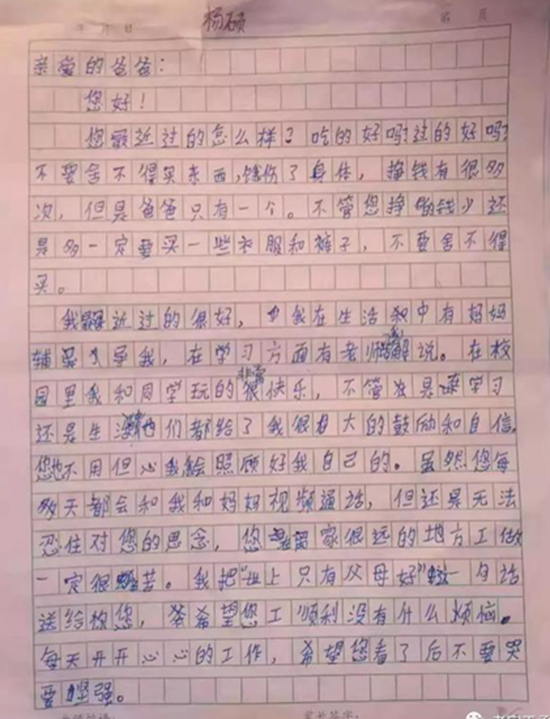 杨硕
亲爱的爸爸：
您好！
您最近过的怎么样？吃的好吗？过的好吗？
不要舍不得买东西，饿伤了身体，挣钱有很多
次，但是爸爸只有一个。不管您挣钱少还
是多一定要买一些衣服和裤子，不要舍不得
买。
我最近过的很好，我在生活中有妈妈
辅导我，在学习方面有老师讲解说。在校
园里我和同学玩的非常很快乐，不管是学习
还是生活他们都给了我很大的鼓励和自信
您也不用但心我会照顾好我自己的。虽然您每
天都会和我和妈妈视频通话，但还是无法
忍住对您的思念，您离家很远的地方工做
一定很辛苦。我把"世上只有父母好"这一句话
送给您，希望您工顺利没有什么烦恼。
每天开开心心的工作，希望您看了后不要哭
要坚强。